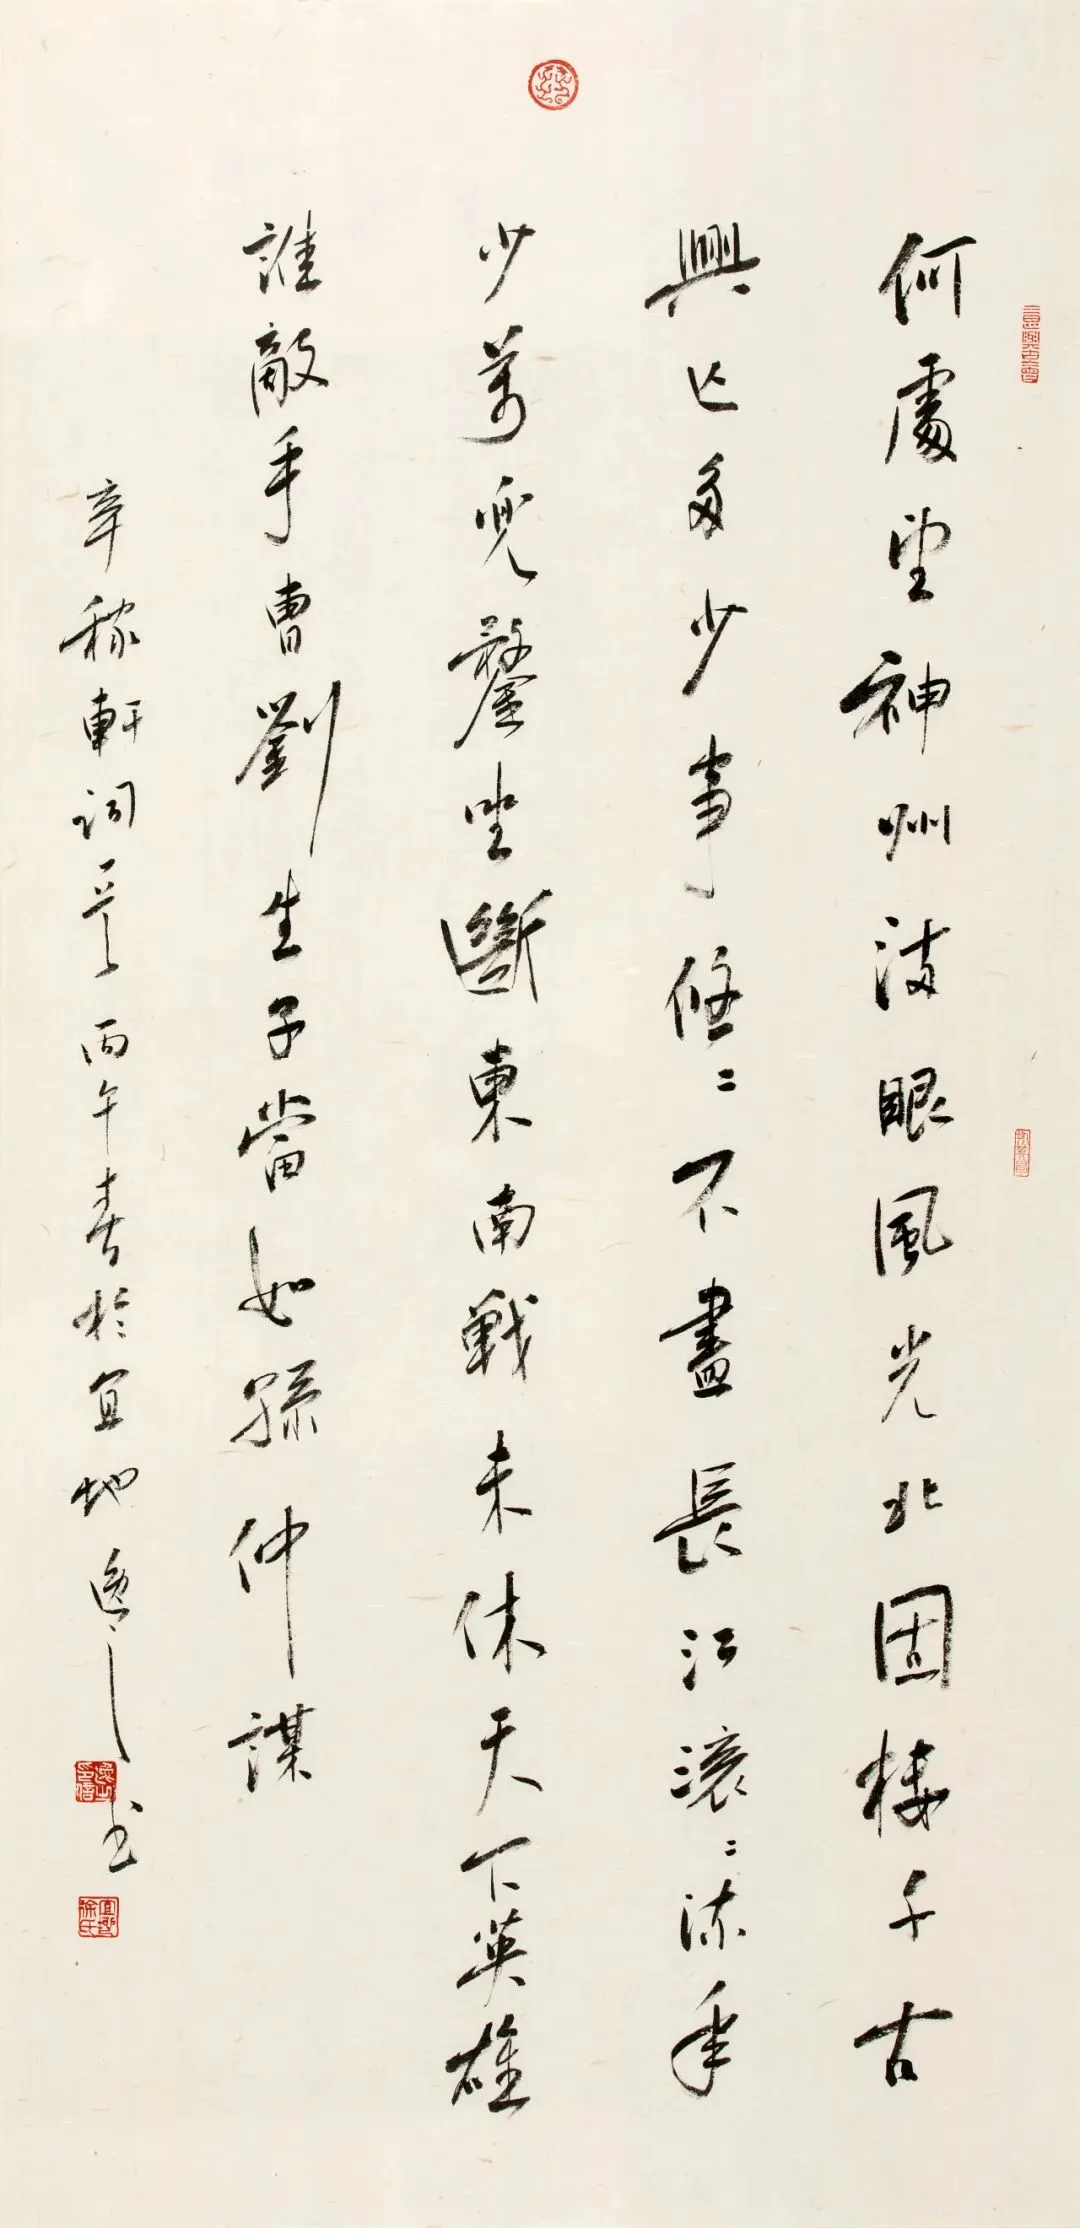 何處望神州滿眼風光北固樓千古
興亡多少事悠〻不盡長江滾〻流年
少萬兜鍪坐斷東南戰未休天下英雄
誰敵手曹劉生子當如孫仲謀
辛稼軒詞一首丙午春於宜地逸之書
逸之印信